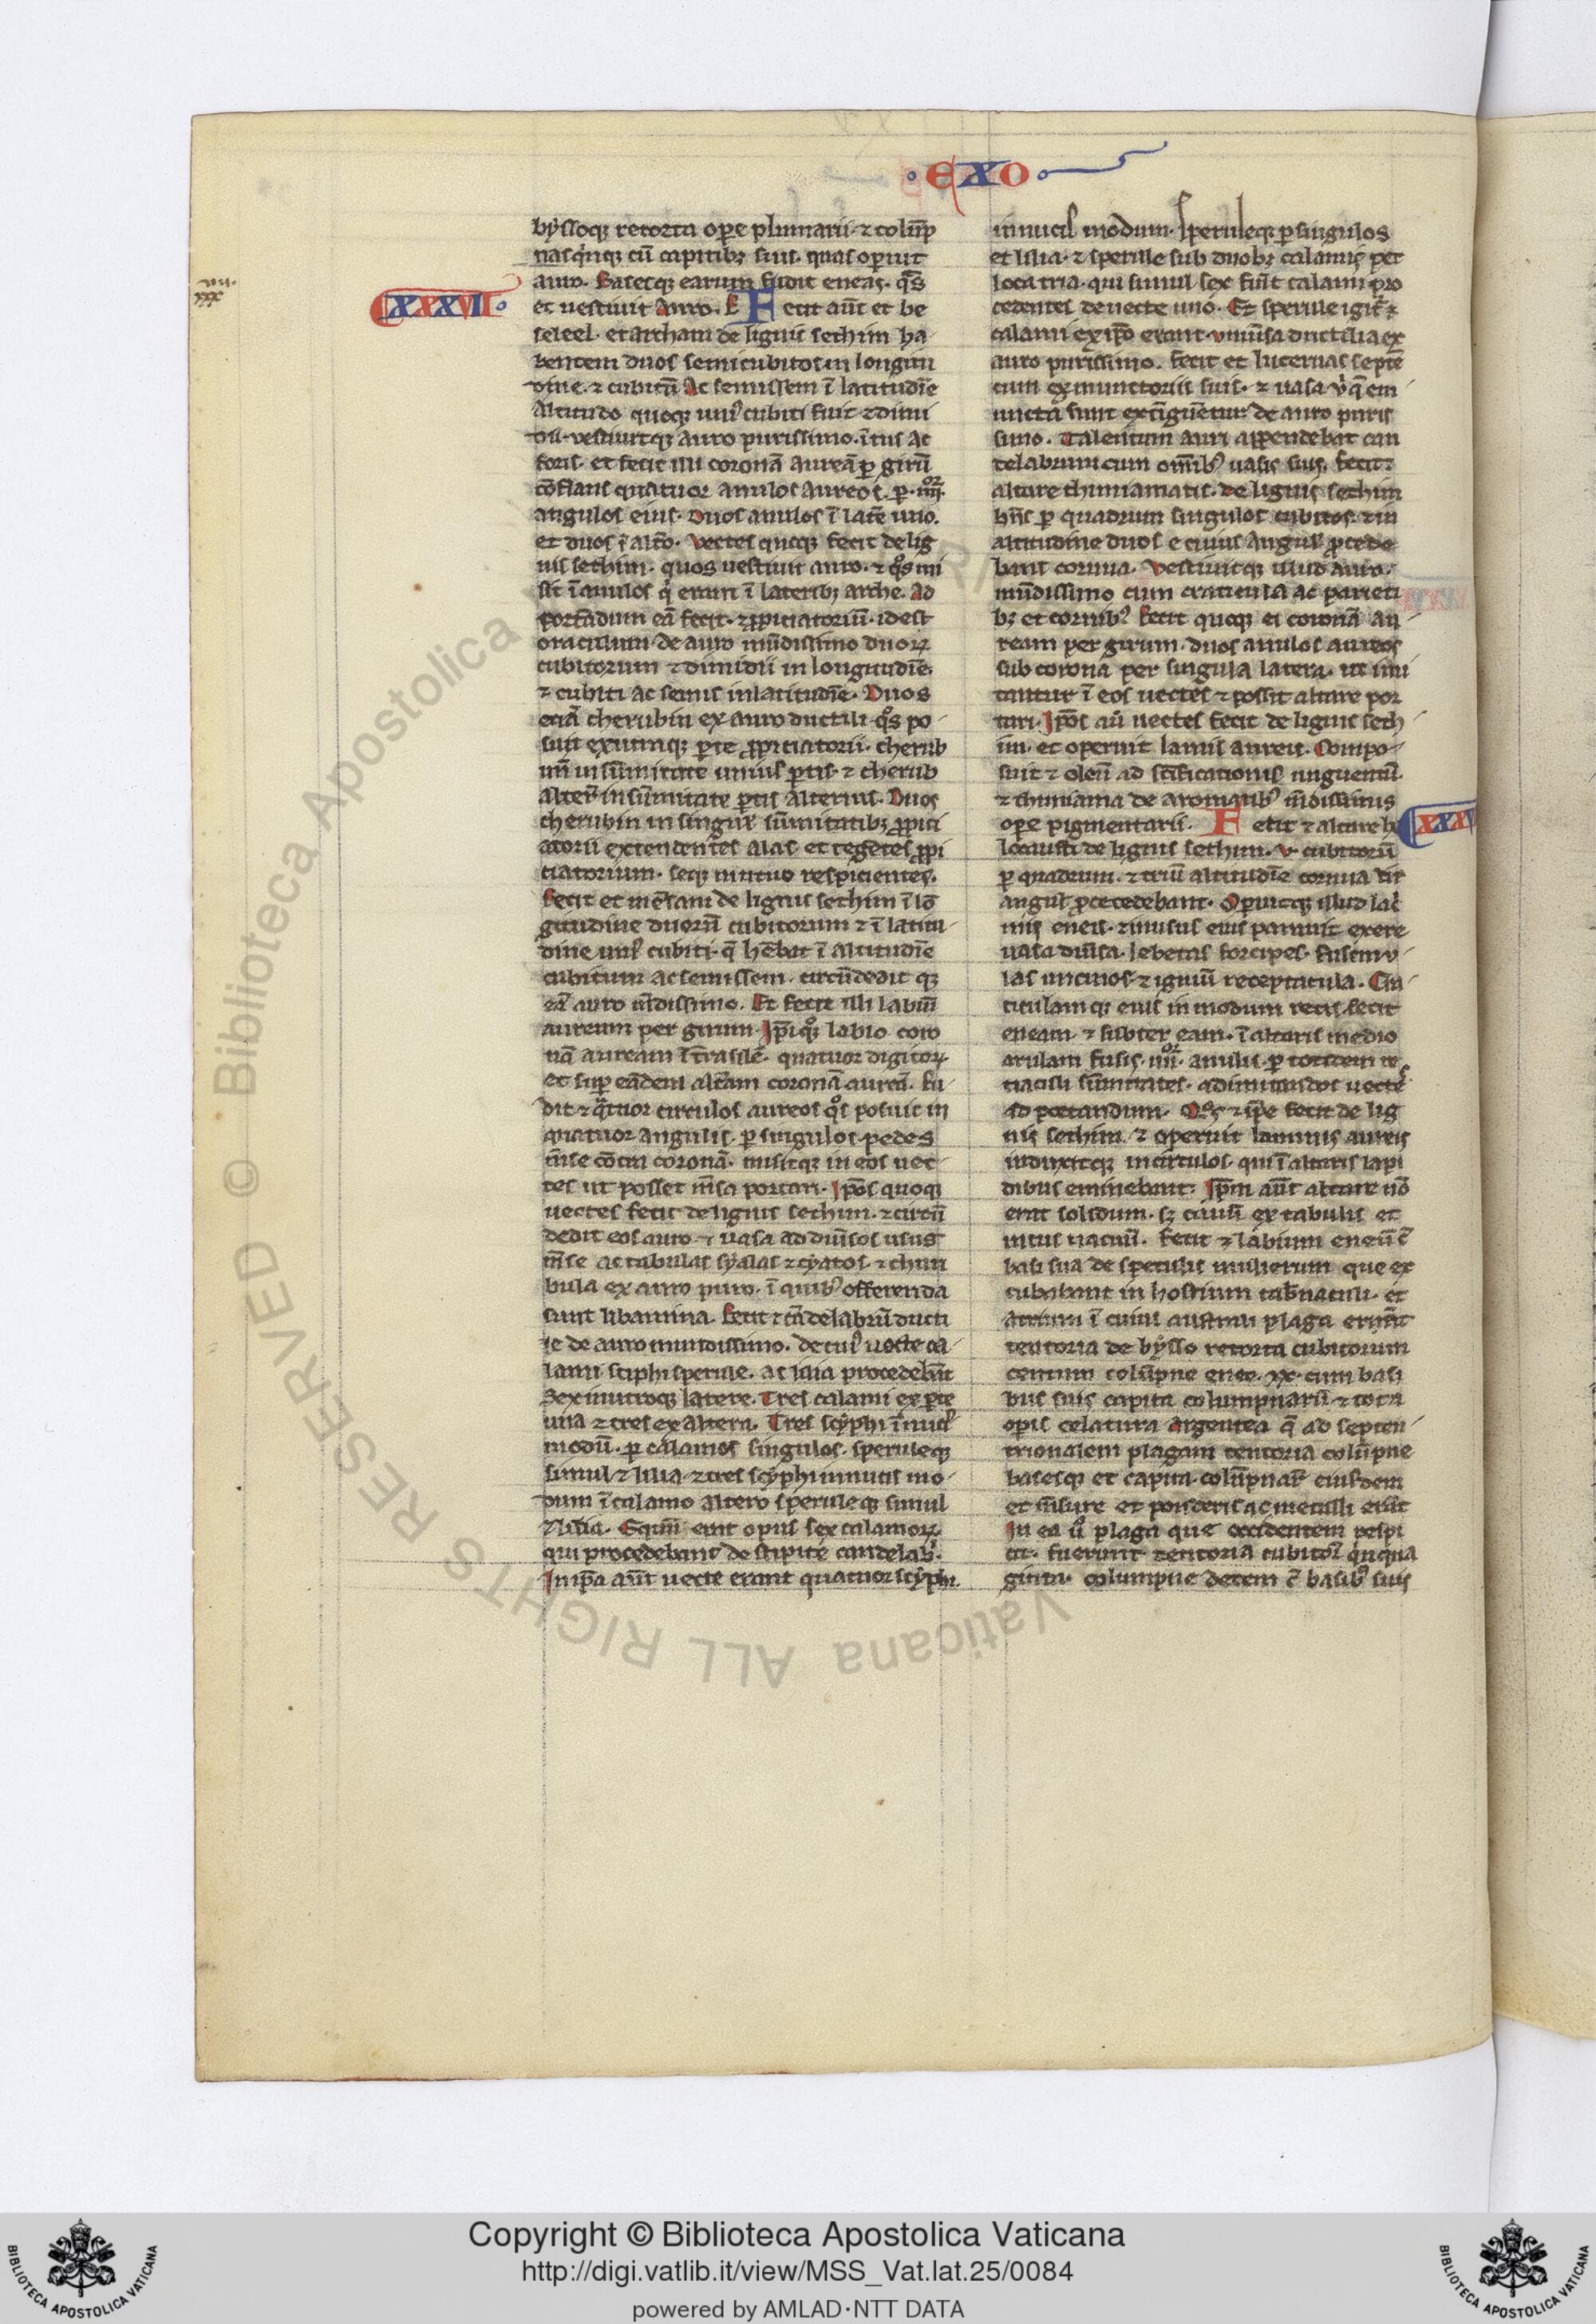 EXO
byssoq; retorta op̲e plumarii· ⁊ colūp
nas q̇nq; cū capitib; suis· quas op̲uit
auro· Basesq; earum fudit eneas· q̊s
XXXVII
et uestiuit Auro· F Fecit aūt et be
seleel· et archam de lignis sethim ha
bentem duos semicubitos in longitu
dine· ⁊ cubitū Ac semissem ī latitudīe
Altitudo quoq; uni᾿ cubiti fuit ⁊ dimi
dii· vestiuitq; auro purissimo· ītus ac
foris· et fecit illi coronā aureā p̲ girū
cōflans quatuor anulos aureos· p̲ ·iiii·
angulos eius· Duos anulos ī lat̄e uno·
et duos ī alt̄o· Vectes quoq; fecit de lig
nis sethim· quos uestiuit auro· ⁊ q̊s mi
sit ī anulos q̇ erant ī laterib; arche· Ad
portādum eā fecit· ⁊ ꝓpitiatoriū· idest
oraculum de auro mūdissimo duoꝝ
cubitorum ⁊ dimidii in longitudīe·
⁊ cubiti ac semis in latitudīe· Duos
eciā cherubin ex auro ductili· q̊s po
suit ex utraq; p̲te ꝓpitiatorii· cherub
un̄ in sūmitate unius p̲tis· ⁊ cherub
alter̄ in sūmitate p̲tis alterius· Duos
cherubin in singul̄ sūmitatib; ꝓpici
atorii extendentes alas et tegētes ꝓpi
ciatorium· seq; mutuo respicientes·
Fecit et mēsam de lignis sethim ī lō
gitudine duorū cubitorum ⁊ ī latitu
dine uni᾿ cubiti· q̄ hēbat ī altitudīe
cubitum ac semissem· circūdedit q;
eā auro mūdissimo· Et fecit illi labiū
aureum per girum· Ip̄iq; labio coro
nā auream īt̄rasilē· quatuor digitoꝝ
et sup̲ eādem alt̄am coronā aureā· Fu
dit ⁊ q̄tuor circulos aureos q̊s posuit in
quatuor angulis· p̲ singulos pedes
m̄se cōtra coronā· misitq; in eos uec
tes ut posset m̄sa portari· Ip̄os quoq;
uectes fecit de lignis sethim· ⁊ circū
dedit eos auro· ⁊ uasa ad diūsos usus
m̄se ac tabulas fyalas ⁊ cyatos· ⁊ thuri
bula ex auro puro· ī quib᾿ offerenda
sunt libamina· Fecit ⁊ cādelabrū ducti
le de auro mundissimo· de cui᾿ uecte ca
lami sciphi sperule· ac lilia procedebāt
Sex in utroq; latere· Tres calami ex p̲te
una ⁊ tres ex altera· Tres scyphi ī nuc᾿
modū· p̲ calamos singulos· speruleq;
simul ⁊ lilia· ⁊ tres scyphi in nucis mo
dum ī calamo altero speruleq; simul
⁊ lilia· Equū erat opus sex calamoꝝ
qui procedebant de stipite candelab̄·
In ip̄a aūt uecte erant quatuor scyphi
in nucis modum· speruleq; p̲ singulos
et lilia· ⁊ sperule sub duob; calamis per
loca tria· qui simul sex fiūt calami pro
cedentes de uecte uno· Et sperule igit᾿ ⁊
calami ex ip̄o erant· vniūsa ductilia ex
auro purissimo· Fecit et lucernas septē
cum emunctoriis suis· ⁊ uasa v̇ q̄ em
uncta sunt extīguētur de auro puris
simo· Talentum auri appendebat can
telabrum cum omīb᾿ uasis suis· Fecit
altare thimiamatis· de lignis sethim
hn̄s p̲ quadrum singulos cubitos· ⁊ in
altitudine duos e cuius angul᾿ ꝓcede
bant cornua· Vestiuitq; illud auro
mūdissimo cum craticula ac parieti
b; et cornib᾿· Fecit quoq; ei coronā au
ream per girum· duos anulos aureos
sub corona per singula latera· ut mi
tantur ī eos uectes ⁊ possit altare por
tari· Ip̄os aū uectes fecit de lignis seth
im· et operuit lamis aureis· Compo
suit ⁊ oleū ad sc̄ificationis unguentū·
⁊ thimiama de aromatib᾿ mūdissimis
op̲e pigmentarii· Fecit ⁊ altare h
XXXV
locausti de lignis sethim· v· cubitorū
p̲ quadrum· ⁊ triū altitudīe cornua de
angul᾿ ꝓcecedebant· Op̲uitq; illud lac᾿
mis eneis· ⁊ in usus eius parauit ex ere
uasa diūsa· lebetas forcipes· fuscinu
las uncinos· ⁊ igniū receptacula· Cra
ticulamq; eius in modum recis fecit
eneam· ⁊ subter eam· ī altaris medio
arulam fusis ·iiii· anulis p̲ totidem re
tiaculi sūmitates· ad imittendos uectes
ad portandum· Q̊s ⁊ ip̄e fecit de lig
nis sethim· ⁊ operuit laminis aureis
induxitq; in circulos· qui ī altaris lapi
dibus eminebant· Ip̄m aūt altare nō
erat solidum· s; cauū ex tabulis et
intus uacuū· Fecit ⁊ labium eneū c̄
basi sua de speculis mulierum que ex
cubabant in hostium tab̄naculi· et
atrium ī cuius australi plaga erant
tentoria de bysso retorta cubitorum
centum colūpne enee· xx· cum basi
bus suis capita columpnarū ⁊ tota
op̲is celatura argentea q̄ ad septen
trionalem plagam tentoria colūpne
basesq; et capita colūpnar̄ eiusdem
et m̄sure et ponderis ac metalli erāt
In ea ů plaga que occidentem respi
cit· fuerunt tentoria cubitoꝝ q̇nqua
ginta· columpne decem c̄ basib᾿ suis
© Biblioteca Apostolica Vaticana ALL RIGHTS RESERVED
Copyright © Biblioteca Apostolica Vaticana
http://digi.vatlib.it/view/MSS_Vat.lat.25/0084
powered by AMLAD·NTT DATA
BIBLIOTECA APOSTOLICA VATICANA
BIBLIOTECA APOSTOLICA VATICANA